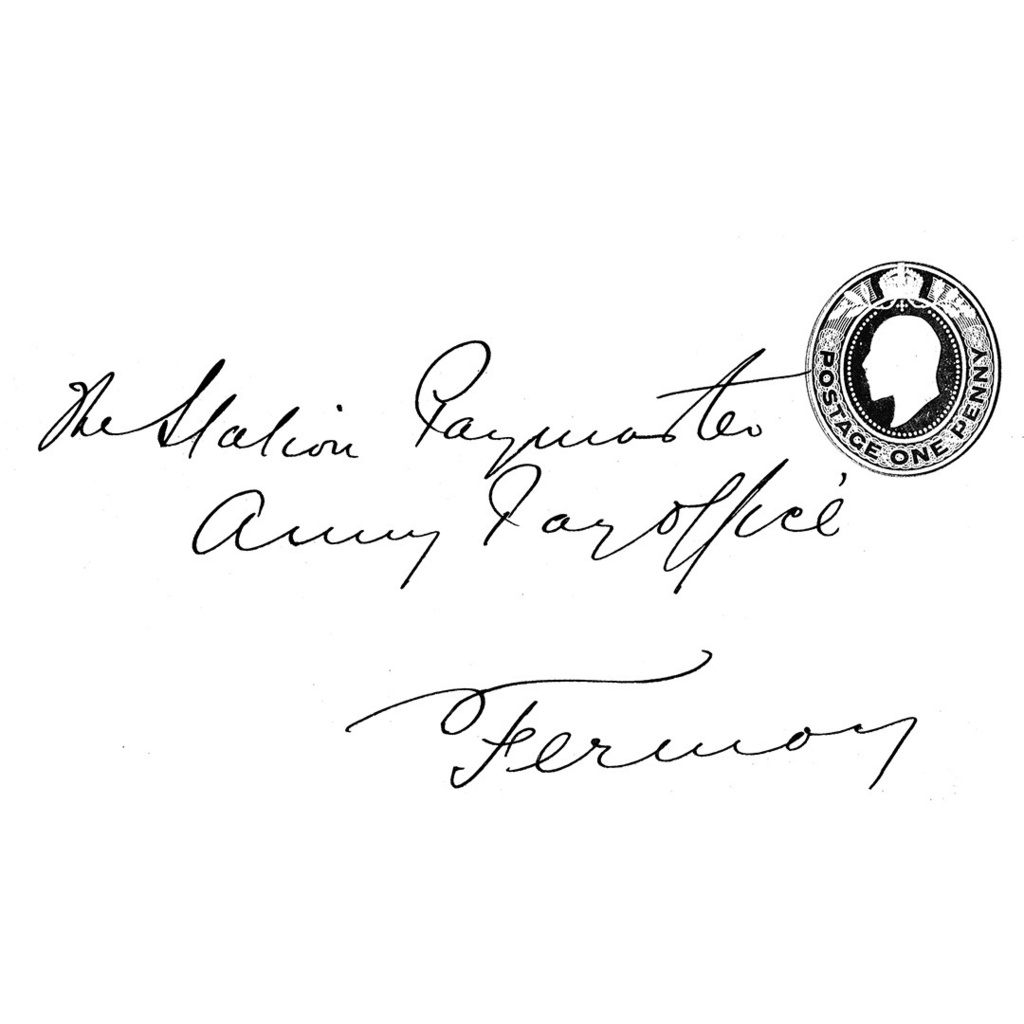 The Station Paymaster
Army Pay Office
Fermoy
POSTAGE ONE PENNY